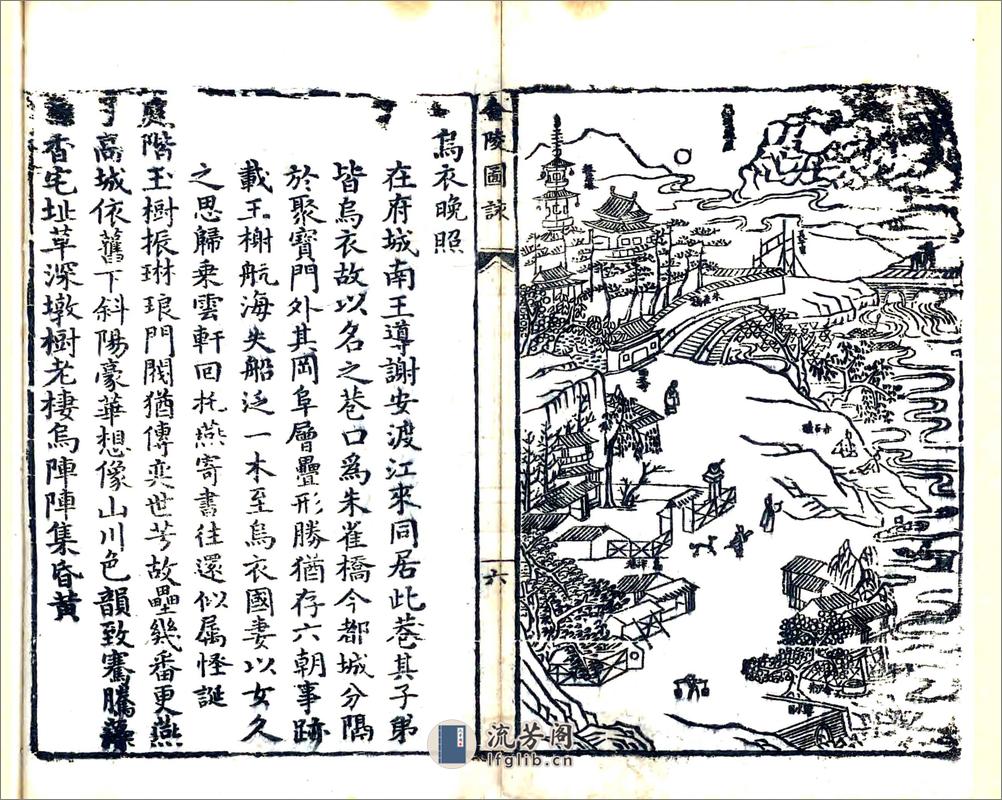 烏衣晚照
在府城南王導謝安渡江來同居此巷其子弟
皆烏衣故以名之巷口爲朱雀橋今都城分隅
於聚寶門外其岡阜層疊形勝猶存六朝事跡
載王榭航海失船泛一木至烏衣國妻以女久
之思歸乘雲軒回托燕寄書往還似属怪誕
庭階玉樹振琳琅門閥猶傳奕世芳故壘幾番更燕
高城依舊下斜陽豪華想像山川色韻致騫騰
香宅址草深墩樹老棲烏陣陣集昏黄
金陵圖詠
六
流芳阁
lfglib.cn